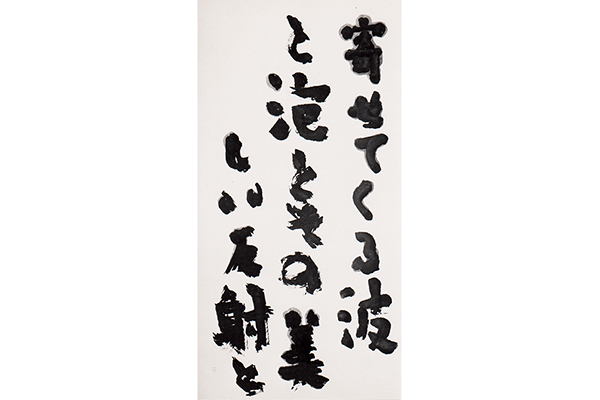 寄せてくる波
と泡とその美
しい反射と